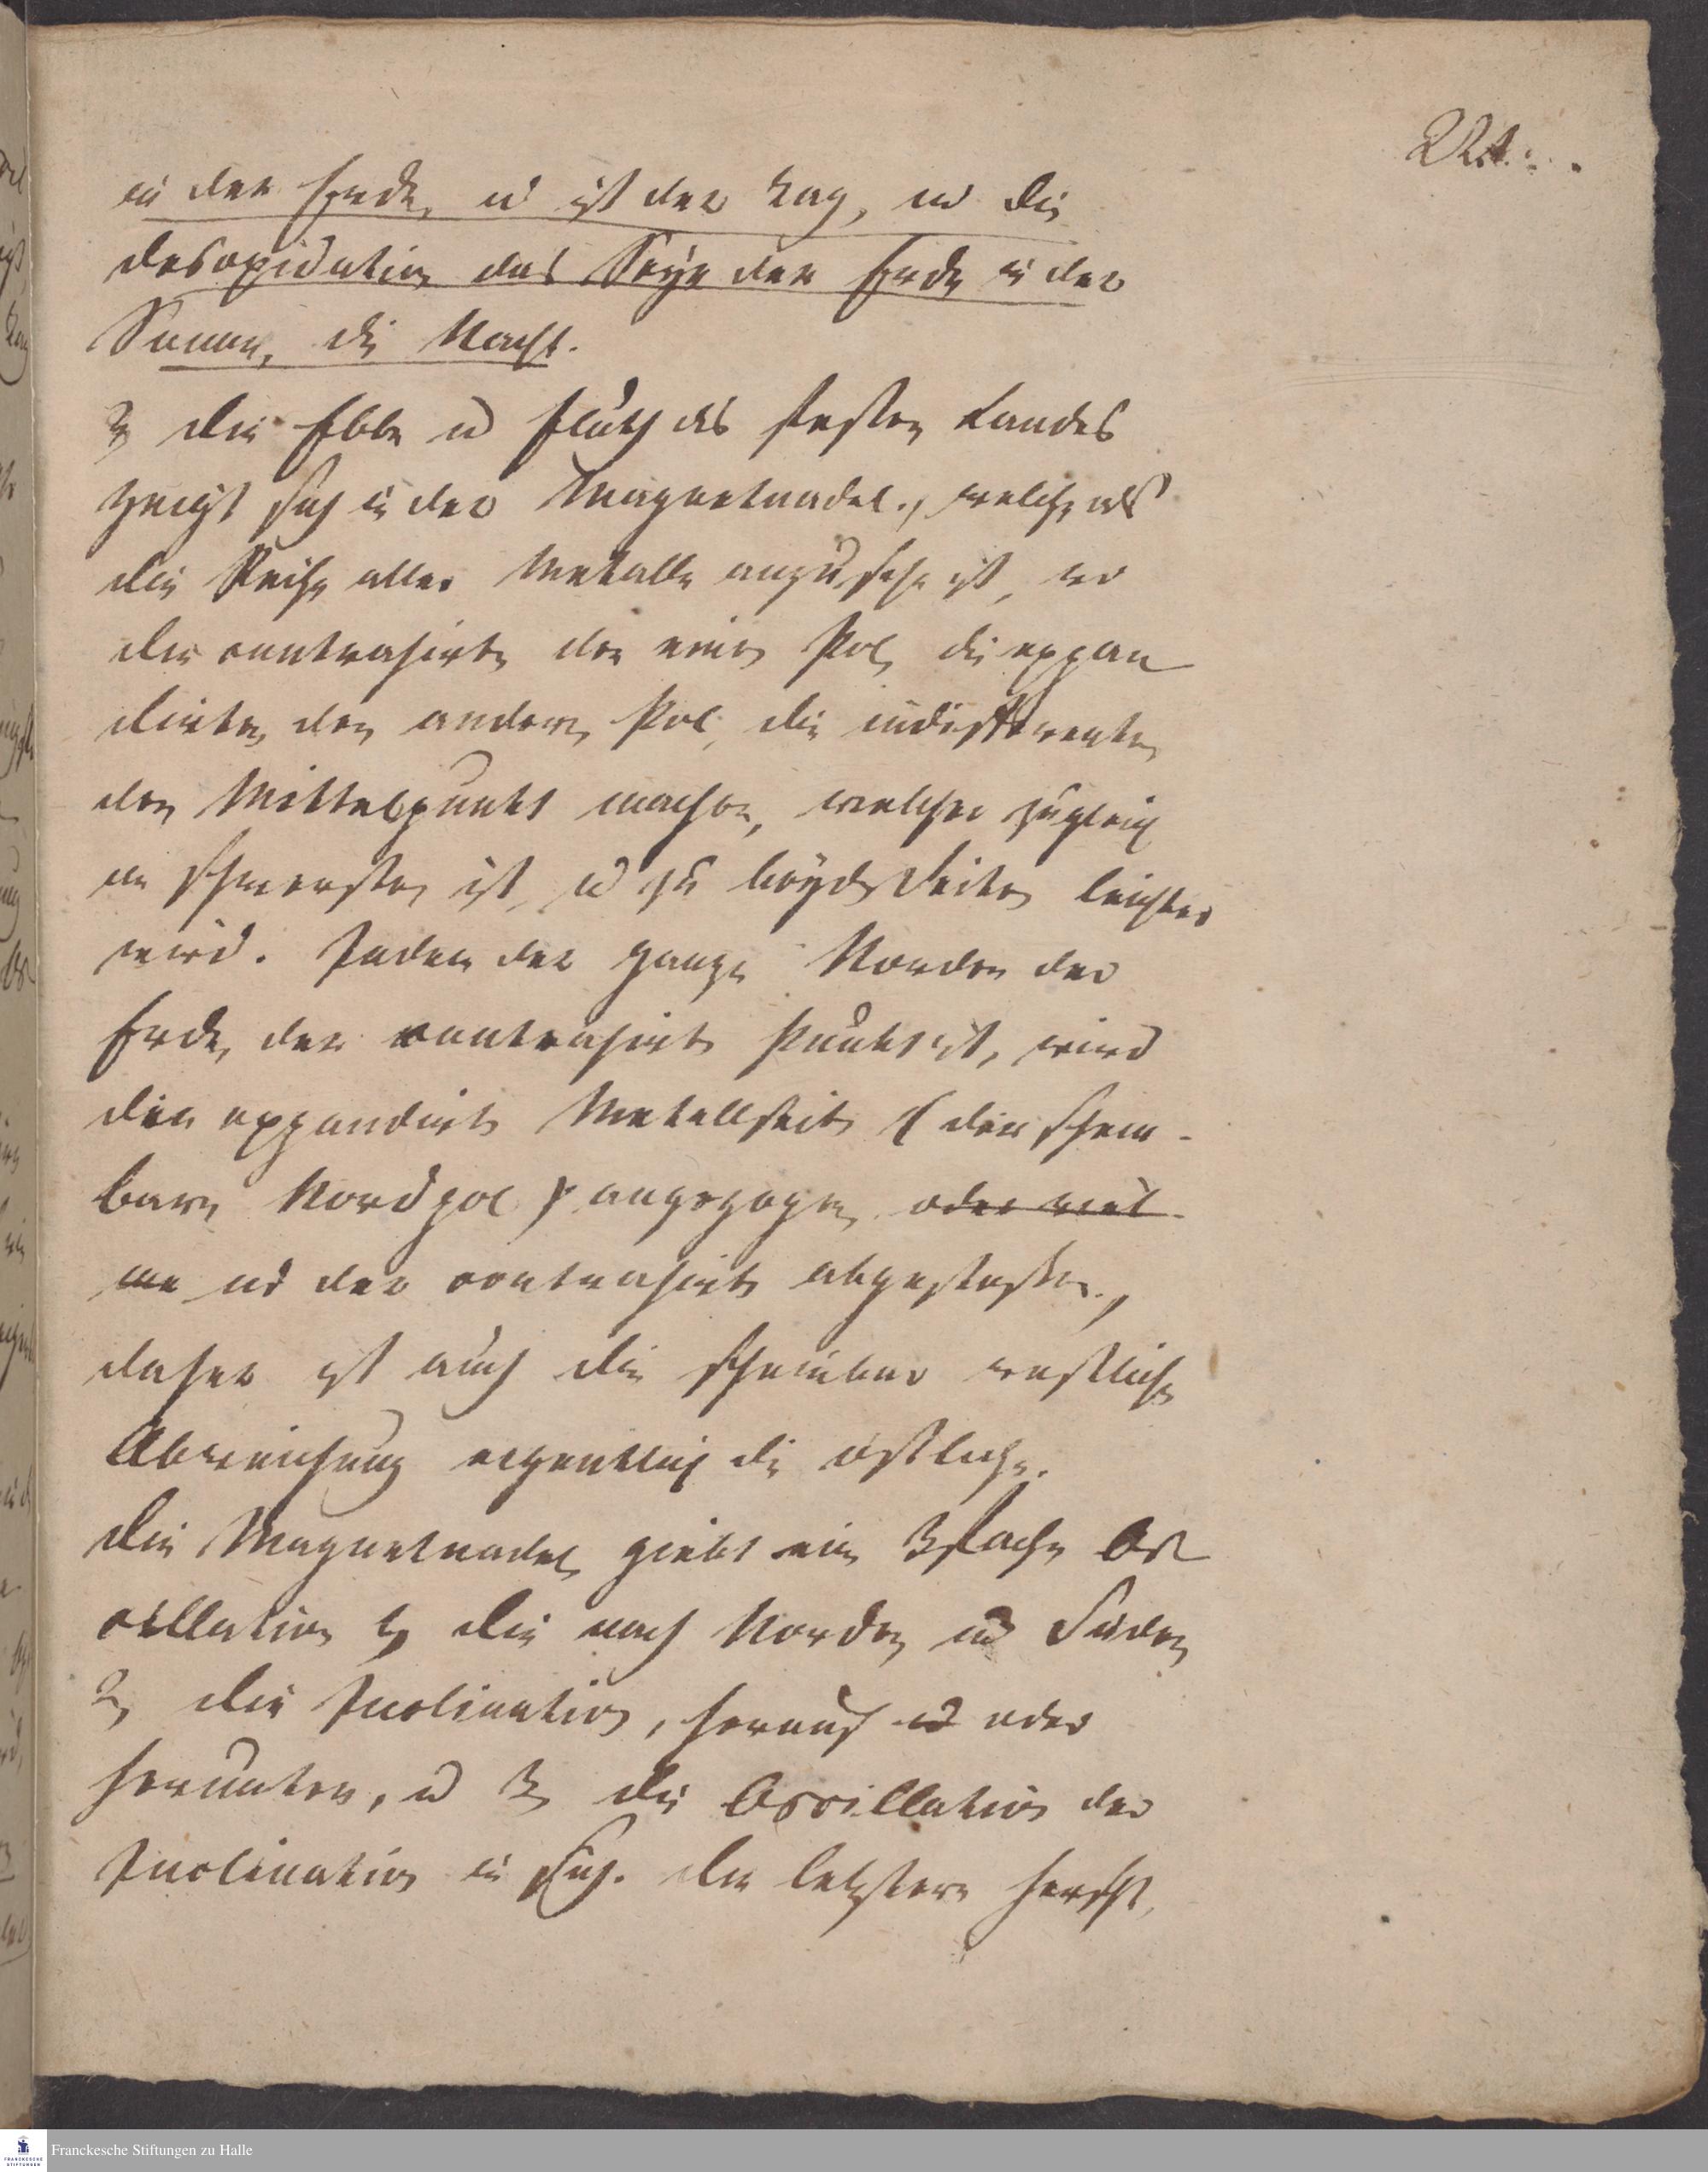 in der Erde, u ist der Tag, u die
desoxidation das Seyn der Erde in der
Sonne, die Nacht.
2, die Ebbe u Fluth des festen Landes
zeigt sich in der Magnetnadel, welche als
die Reihe aller Metalle anzusehn ist, wo
die contrahirten den einen Pol, die expan
dirten den andern Pol, die indifferenten
den Mittelpunkt machen, welcher zugleich
am schwersten ist, u zu beyden Seiten leichter
wird. Indem der ganze Norden der
Erde, der contrahirte Punkt ist, wird
die expandirte Metallseite (der schein-
bare Nordpol) angezogen, oder viel-
me u der contrahirte abgestossen,
daher ist auch die scheinbar westliche
Abweichung eigentlich die östliche.
Die Magnetnadel giebt eine 3fache Os
cillation 1, die nach Norden und Süden
2, die Inclination, herauf u oder
herunter, u 3, die Oscillation der
Inclination in sich. Die letztere herscht,
Franckesche Stiftungen zu Halle